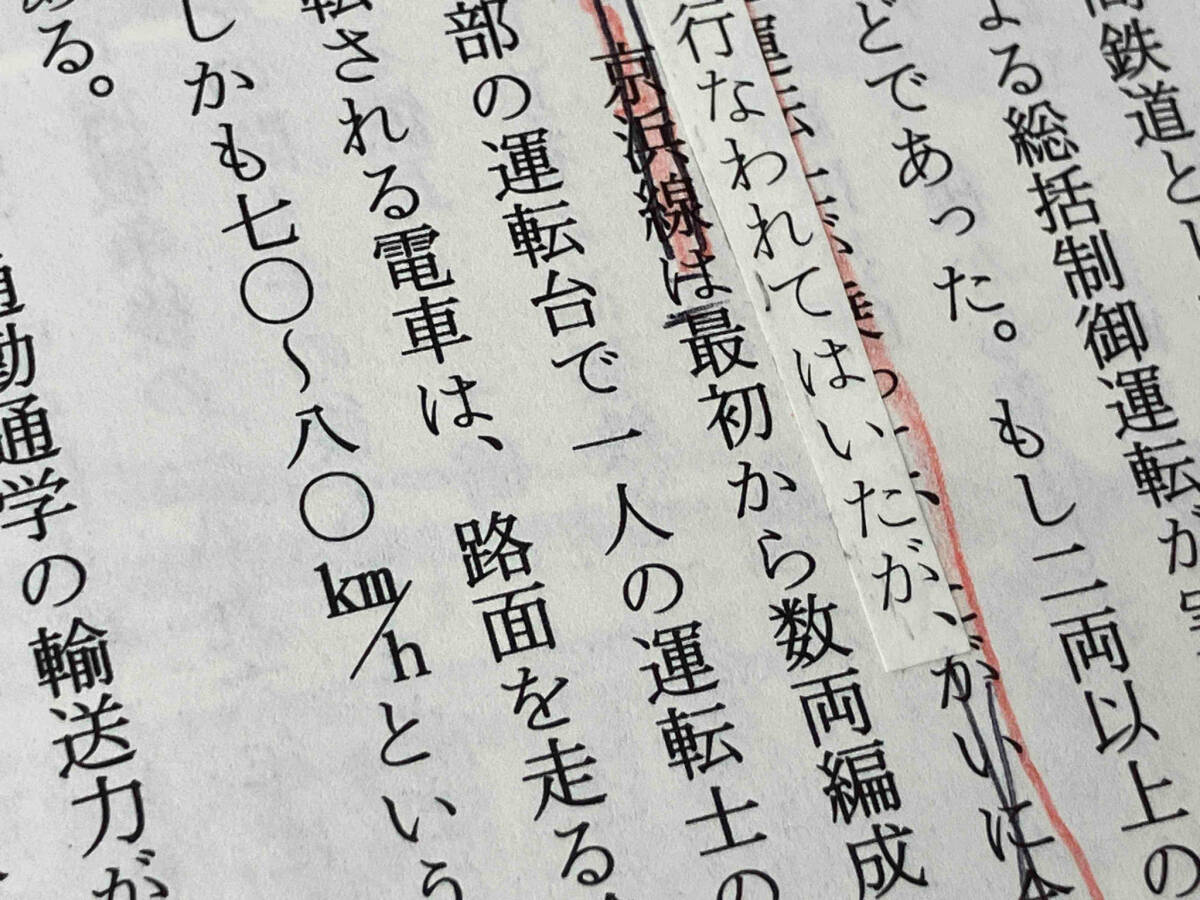 高鉄道と
よる総括制御運転が
どであった。もし二両以上の
行なわれてはいたが、
がいに
京浜線は最初から数両編成
部の運転台で一人の運転士の
転される電車は、路面を走る
しかも七〇〜八〇km/hという
ある。
通勤通学の輸送力が